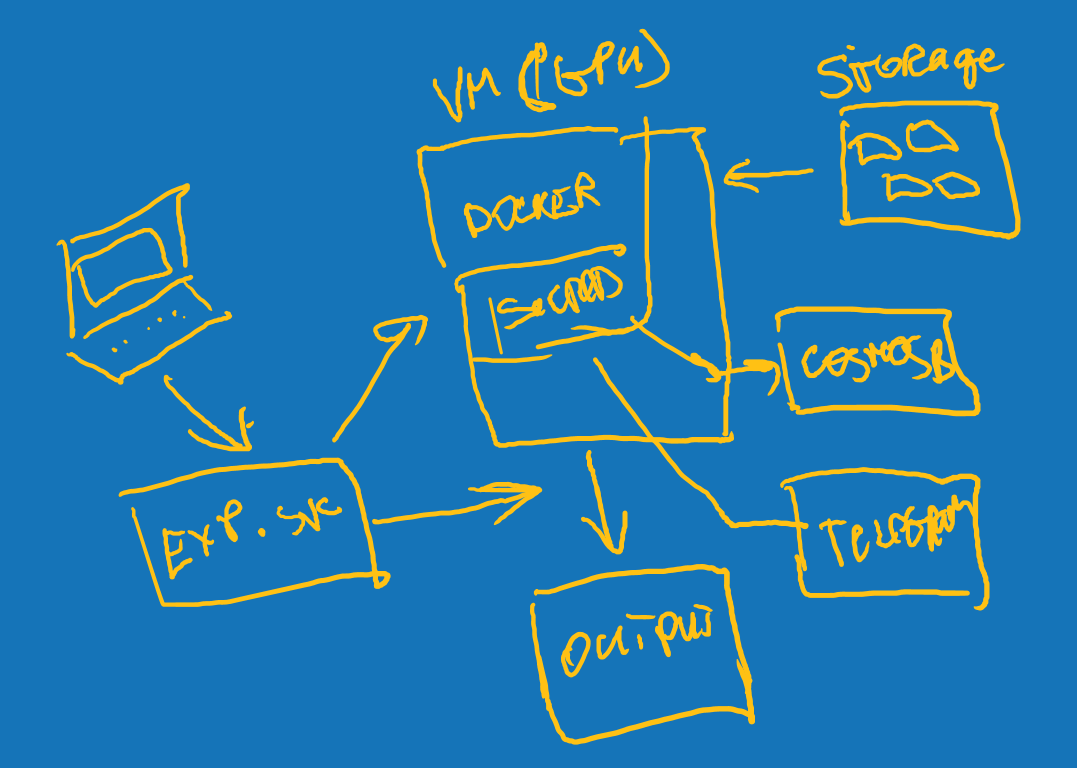 VM (GPU)
Storage
DOCKER
COSMOSB
EXP. SVC
TELEGRAM
OUTPUT